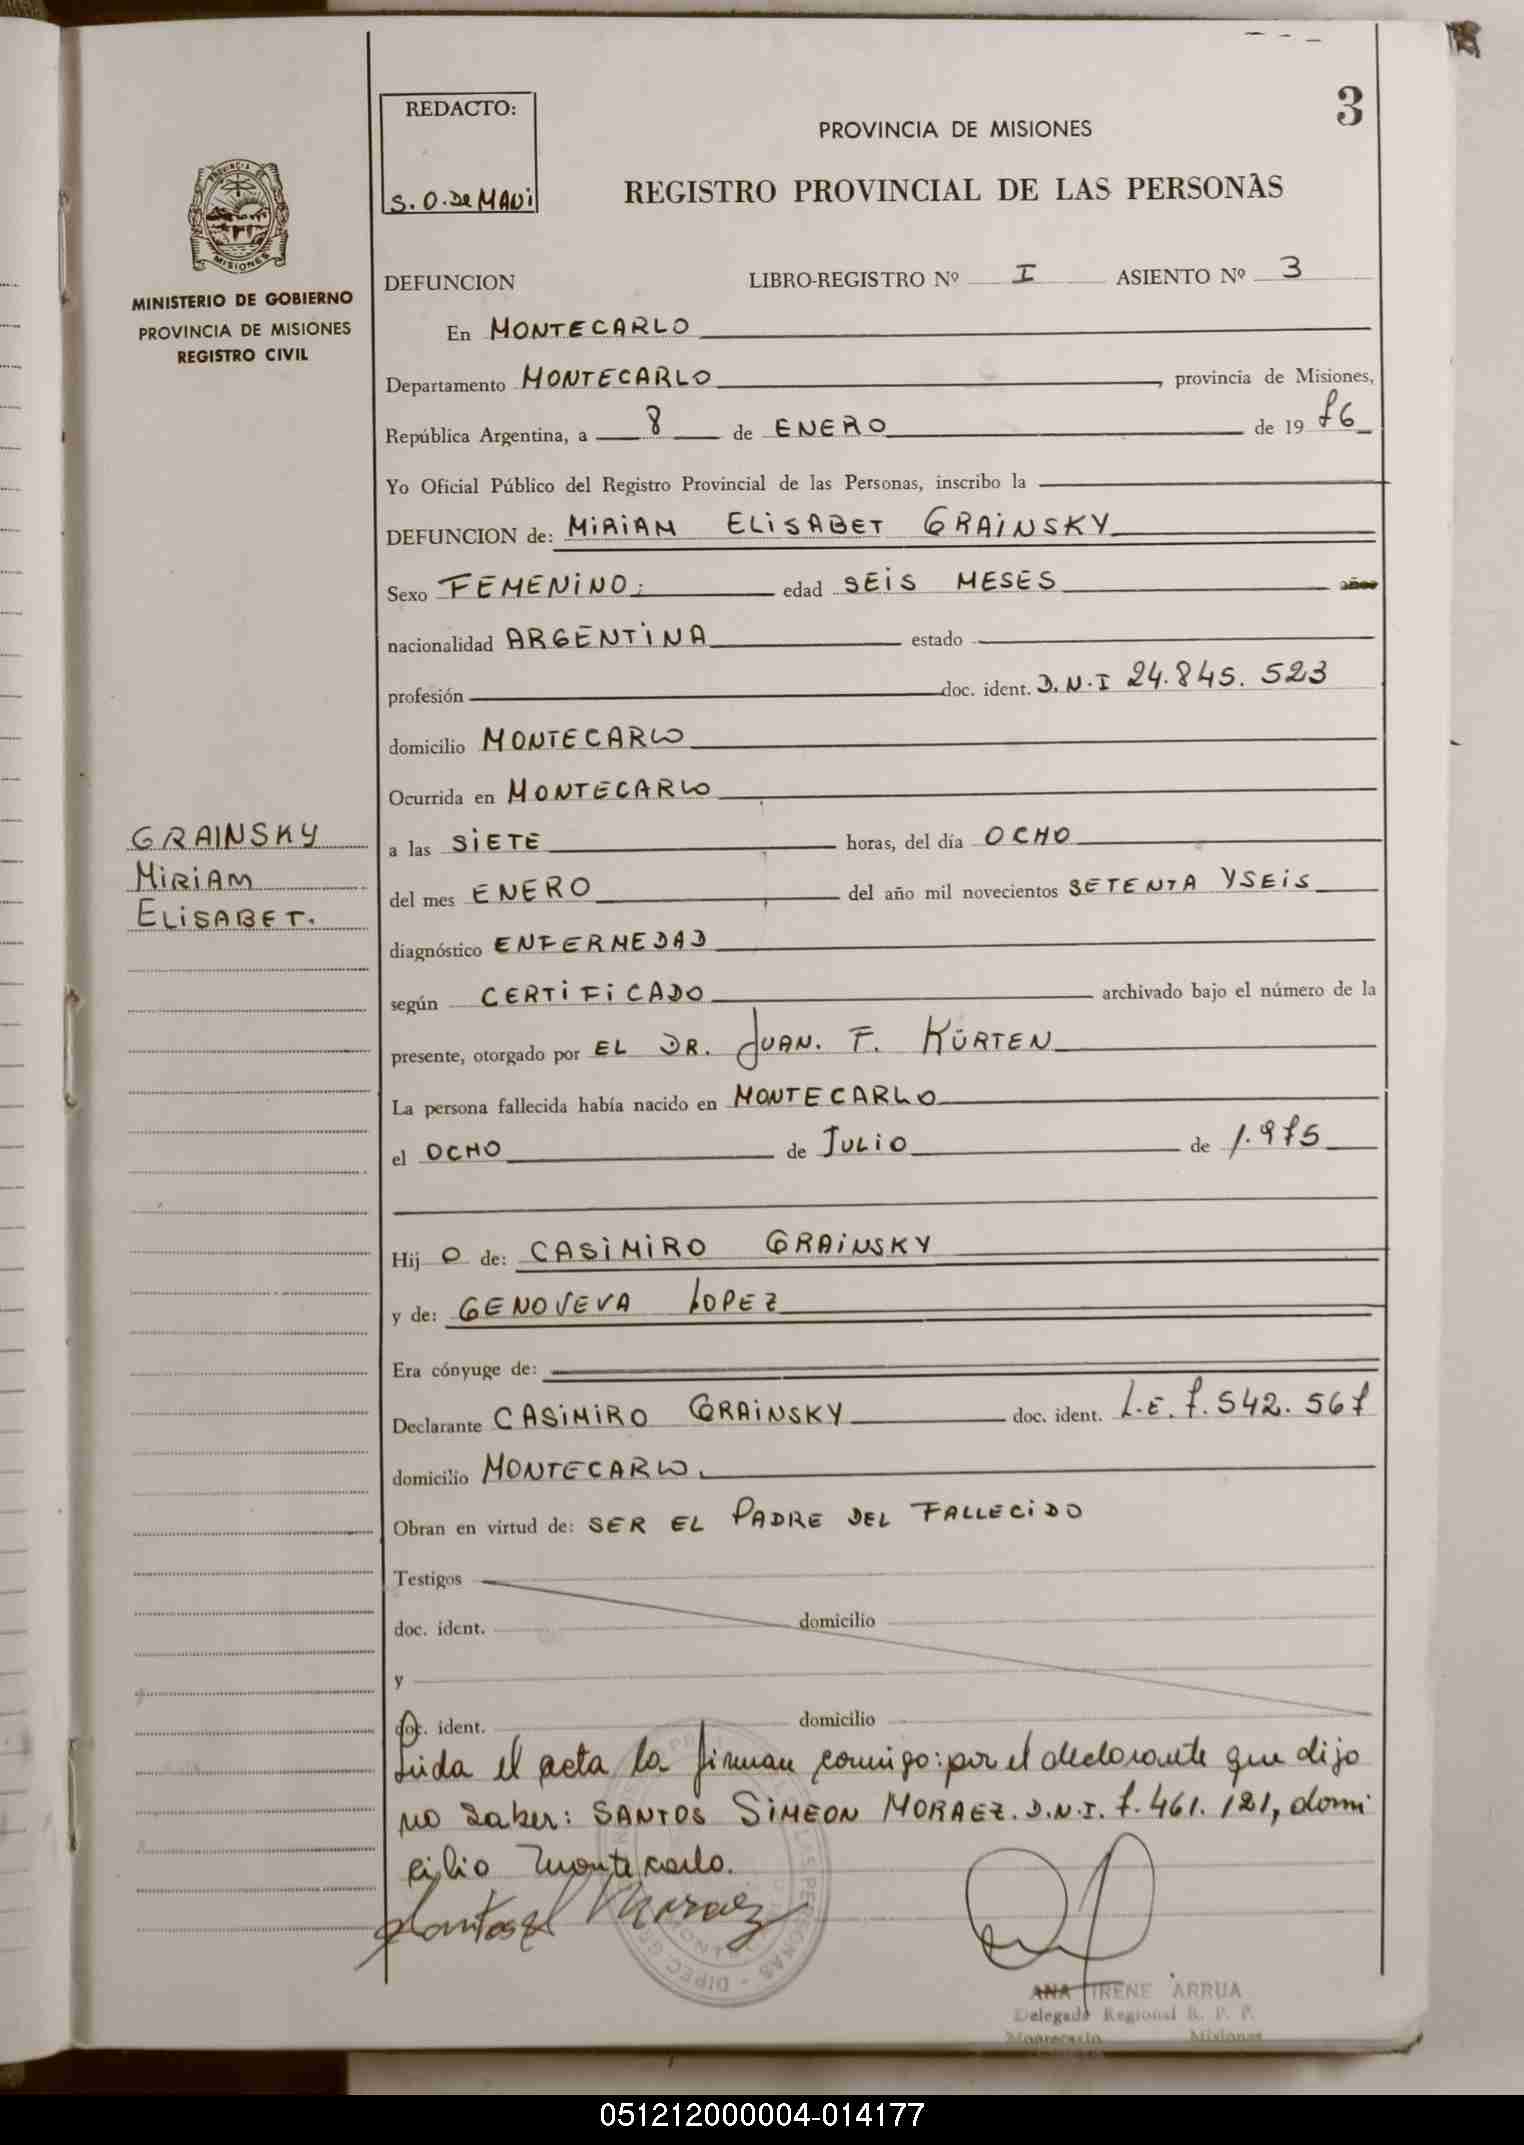 3
REDACTO:
S. O. De MAVI
PROVINCIA DE MISIONES
REGISTRO PROVINCIAL DE LAS PERSONAS
MISIONES
MINISTERIO DE GOBIERNO
PROVINCIA DE MISIONES
REGISTRO CIVIL
DEFUNCION LIBRO-REGISTRO Nº I ASIENTO Nº 3
En MONTECARLO
Departamento MONTECARLO, provincia de Misiones,
República Argentina, a 8 de ENERO de 19 76
Yo Oficial Público del Registro Provincial de las Personas, inscribo la
DEFUNCION de: MIRIAM ELISABET GRAINSKY
Sexo FEMENINO; edad SEIS MESES años
nacionalidad ARGENTINA estado
profesión doc. ident. D.N.I 24.845.523
domicilio MONTECARLO
Ocurrida en MONTECARLO
GRAINSKY
MIRIAM
ELISABET.
a las SIETE horas, del día OCHO
del mes ENERO del año mil novecientos SETENTA Y SEIS
diagnóstico ENFERMEDAD
según CERTIFICADO archivado bajo el número de la
presente, otorgado por EL DR. JUAN. F. KÜRTEN
La persona fallecida había nacido en MONTECARLO
el OCHO de JULIO de 1.975
Hij O de: CASIMIRO GRAINSKY
y de: GENOVEVA LOPEZ
Era cónyuge de:
Declarante CASIMIRO GRAINSKY doc. ident. L.E. 7.542.567
domicilio MONTECARLO.
Obran en virtud de: SER EL PADRE DEL FALLECIDO
Testigos
doc. ident. domicilio
y
doc. ident. domicilio
Leida el acta la firman conmigo: por el declarante que dijo
no saber: SANTOS SIMEON MORAEZ. D.N.I. 7.461.121, domi
cilio Montecarlo.
Santos S Moraez
ANA IRENE ARRUA
Delegada Regional R. P. P.
Montecarlo Misiones
051212000004-014177